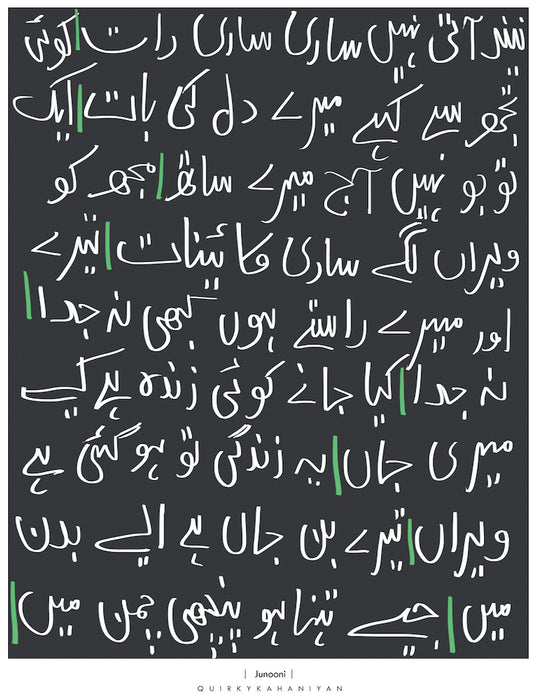 نیند آتی نہیں ساری ساری رات | کوئی
تجھ سے کہے میرے دل کی بات | ایک
تو ہو نہیں آج میرے ساتھ | مجھ کو
ویراں لگے ساری کائینات | تیرے
اور میرے راستے ہوں کبھی نہ جدا |
نہ جدا | کیا جانے کوئی زندہ ہے کیسے
میری جاں | یہ زندگی تو ہو گئی ہے
ویراں | تیرے بن جاں ہے ایسے بدن
میں | جیسے تنہا ہو پنچھی چمن میں |
| Junooni |
QUIRKYKAHANIYAN